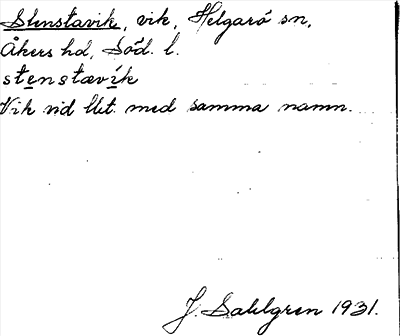 Stenstavik, vik, Helgarö sn,
Åkers hd, Söd. l.
stenstavik
Vik vid lht. med samma namn.
J. Sahlgren 1931.